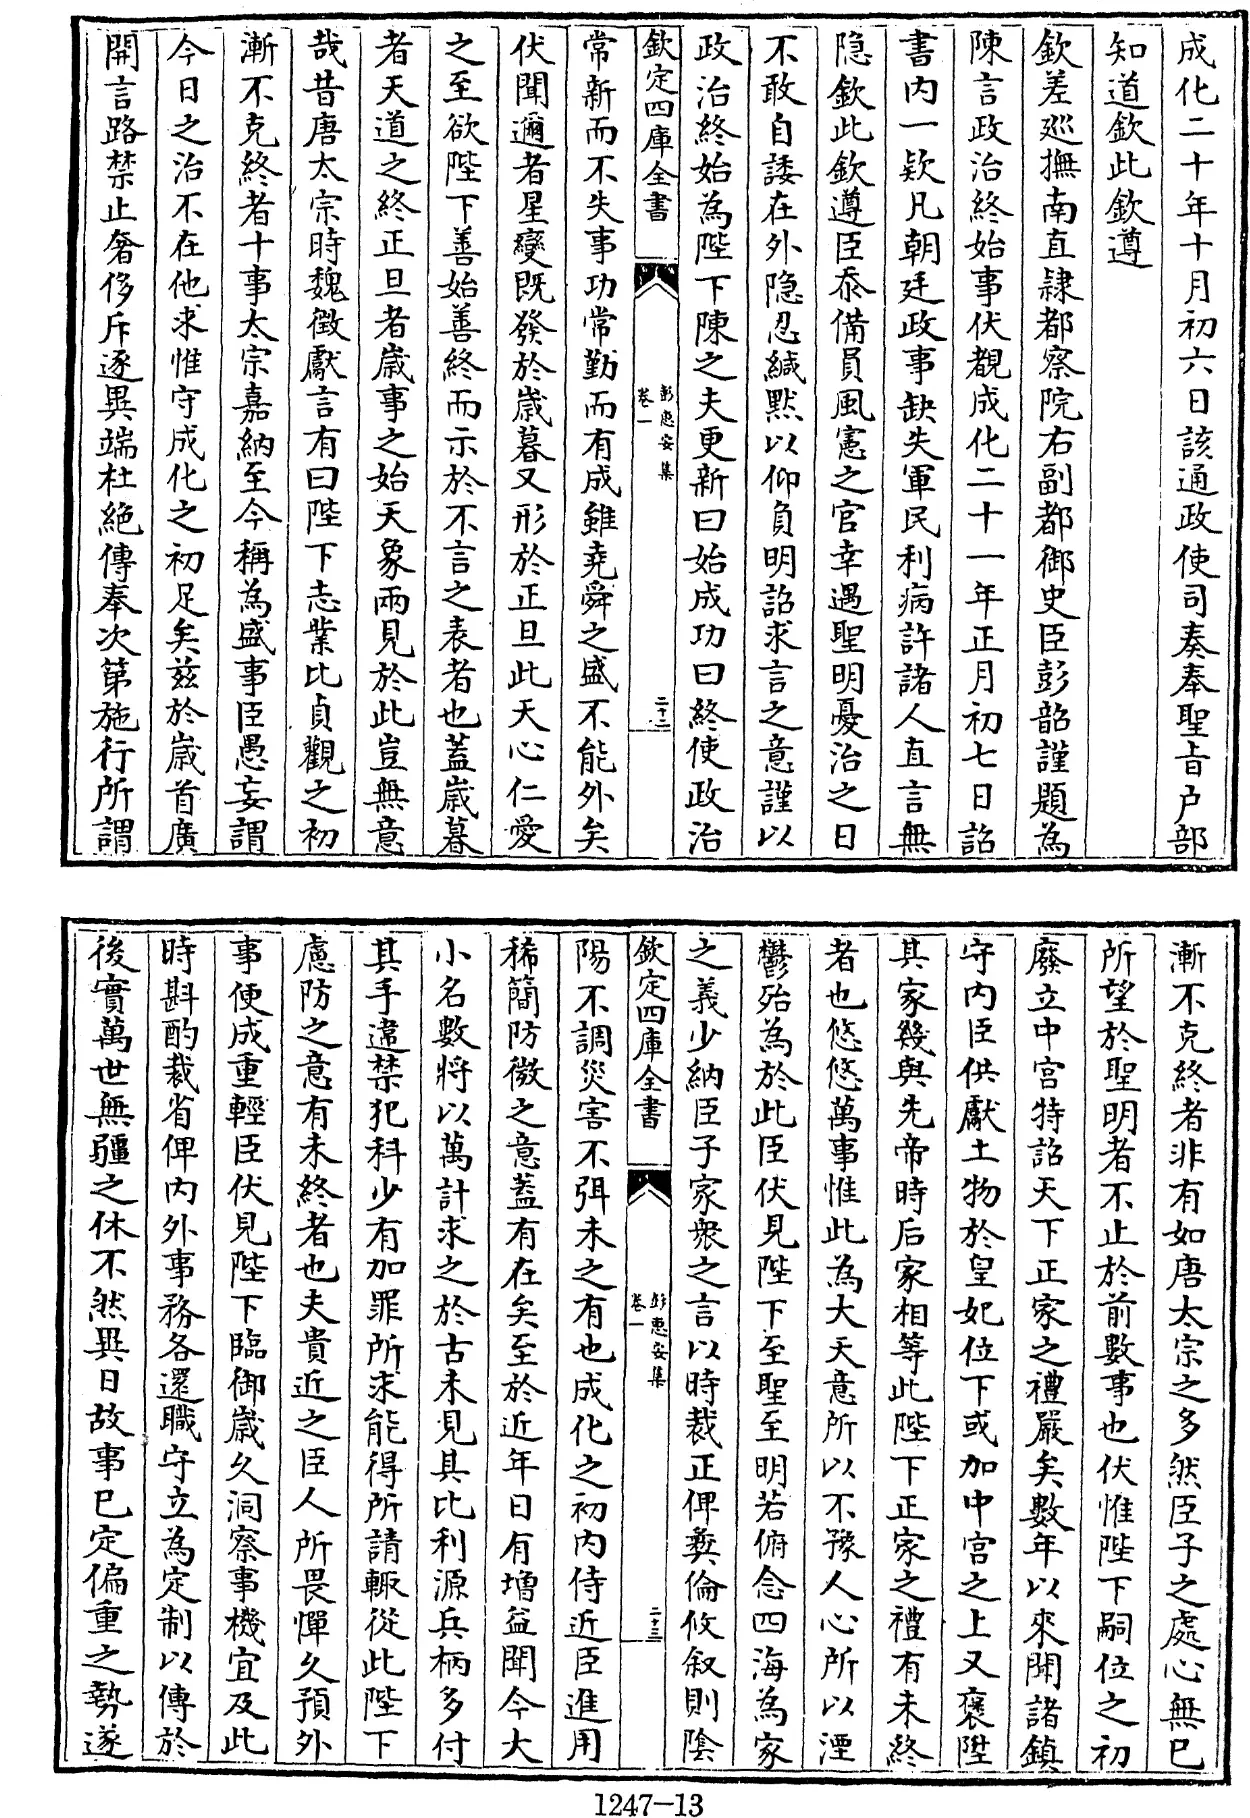 成化二十年十月初六日該通政使司奏奉聖旨户部
知道欽此欽遵
欽差廵撫南直隷都察院右副都御史臣彭韶謹題為
陳言政治終始事伏覩成化二十一年正月初七日詔
書内一欵凡朝廷政事缺失軍民利病許諸人直言無
隐欽此欽遵臣忝備員風憲之官幸遇聖明憂治之日
不敢自諉在外隐忍緘默以仰負明詔求言之意謹以
政治終始為陛下陳之夫更新曰始成功曰終使政治
欽定四庫全書
彭惠安集
卷一
二十二
常新而不失事功常勤而有成雖堯舜之盛不能外矣
伏聞邇者星變既發於歲暮又形於正旦此天心仁愛
之至欲陛下善始善終而示於不言之表者也蓋歲暮
者天道之終正旦者歲事之始天象兩見於此豈無意
哉昔唐太宗時魏徵獻言有曰陛下志業比貞觀之初
漸不克終者十事太宗嘉納至今稱為盛事臣愚妄謂
今日之治不在他求惟守成化之初足矣兹於歲首廣
開言路禁止奢侈斥逐異端杜絶傳奉次第施行所謂
漸不克終者非有如唐太宗之多然臣子之處心無已
所望於聖明者不止於前數事也伏惟陛下嗣位之初
廢立中宫特詔天下正家之禮嚴矣數年以來聞諸鎮
守内臣供獻土物於皇妃位下或加中宫之上又褒陞
其家幾與先帝時后家相等此陛下正家之禮有未終
者也悠悠萬事惟此為大天意所以不豫人心所以湮
鬱殆為於此臣伏見陛下至聖至明若俯念四海為家
之義少納臣子家衆之言以時裁正俾彝倫攸叙則陰
欽定四庫全書
彭惠安集
卷一
二十三
陽不調災害不弭未之有也成化之初内侍近臣進用
稀簡防微之意葢有在矣至於近年日有增益聞今大
小名數將以萬計求之於古未見其比利源兵柄多付
其手違禁犯科少有加罪所求能得所請輙從此陛下
慮防之意有未終者也夫貴近之臣人所畏憚久預外
事便成重輕臣伏見陛下臨御歲久洞察事機宜及此
時斟酌裁省俾内外事務各還職守立為定制以傳於
後實萬世無疆之休不然異日故事已定偏重之勢遂
1247-13